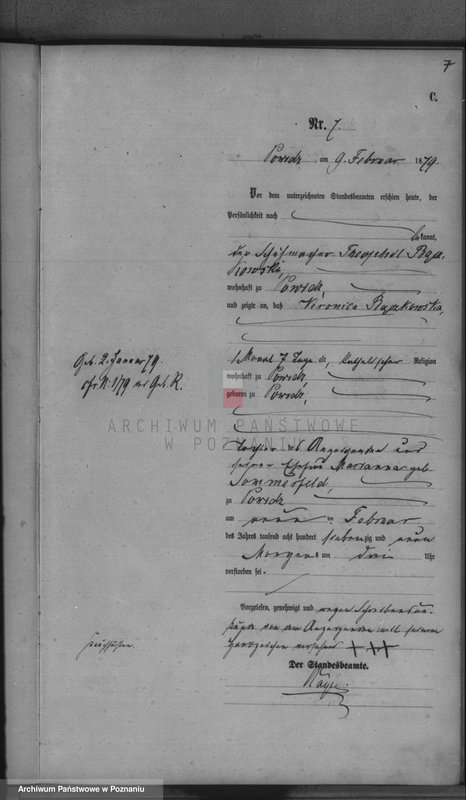 7
C.
Nr. 7.
Powidz am 9. Februar 1879.
Vor dem unterzeichneten Standesbeamten erschien heute, der
Persönlichkeit nach
bekannt,
der Schuhmacher Theophil
wohnhaft zu Powidz,
und zeigte an, daß Veronica
Geb. 2. Januar 79.
1 Monat 7 Tage alt, katholischer Religion
wohnhaft zu Powidz,
geboren zu Powidz,
ARCHIWUM PAŃSTWOWE
W POZNANIU
Tochter des Anzeigenden und
seiner Ehefrau Marianna geb.
Sommerfeld,
zu Powidz
am neun ten Februar
des Jahres tausend acht hundert siebenzig und neun
Morgens um drei Uhr
verstorben sei.
Vorgelesen, genehmigt und wegen Schreibensun-
kunde von dem Anzeigenden mit seinem
Handzeichen versehen +++
Der Standesbeamte.
Archiwum Państwowe w Poznaniu